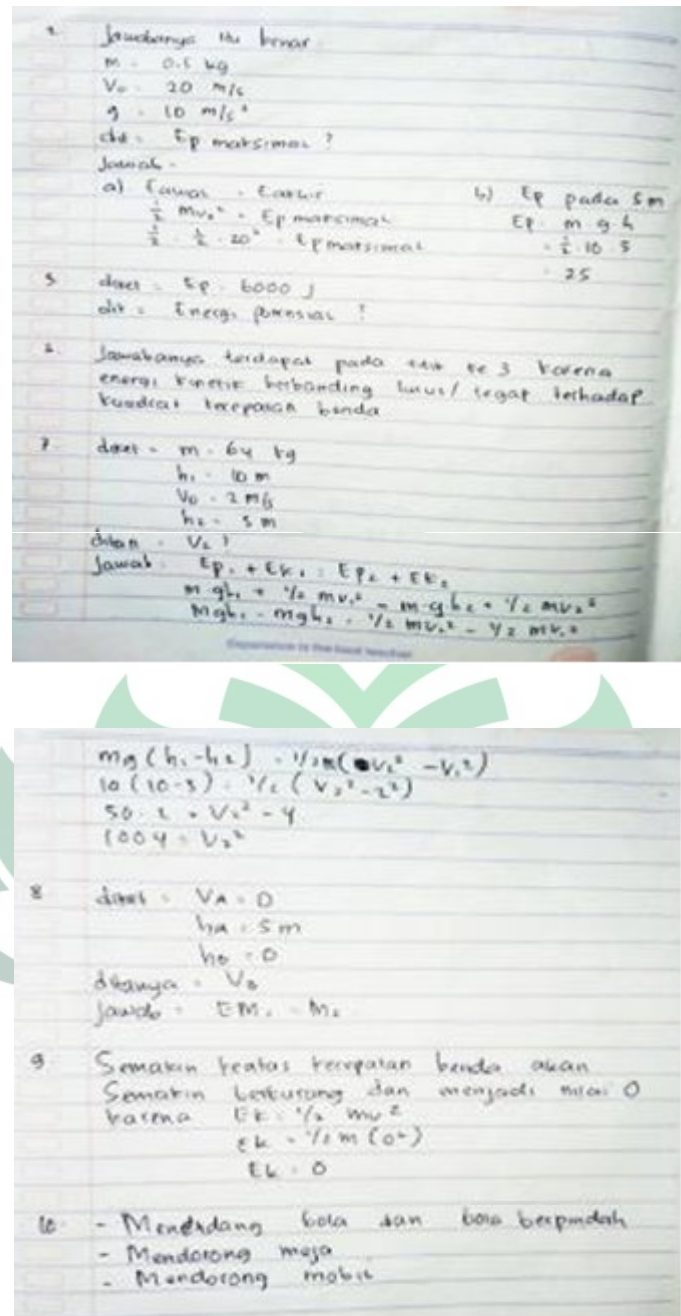 Jawabanya itu benar
m = 0.5 kg
V₀ = 20 m/s
g = 10 m/s²
dit = Ep maksimal ?
Jawab =
a) Eawal = Eakhir
½ mv₀² = Ep maksimal
½ · ½ · 20² = Ep maksimal
b) Ep pada 5 m
Ep = m g h
= ½ · 10 · 5
= 25
5 diket = Ep = 6000 J
dit = Energi potensial ?
Jawabanya terdapat pada titik ke 3 karena
energi kinetik berbanding lurus/ tegak terhadap
kuadrat kecepatan benda
7 diket = m = 64 kg
h₁ = 10 m
V₀ = 2 m/s
h₂ = 5 m
ditan = V₂ ?
Jawab = Ep₁ + Ek₁ = Ep₂ + Ek₂
m gh₁ + ½ mv₁² = m g h₂ + ½ mv₂²
mgh₁ - mgh₂ = ½ mv₂² - ½ mv₁²
Experience is the best teacher
mg (h₁-h₂) = ½ m (v₂² - v₁²)
10 (10-5) = ½ (v₂² - 2²)
50 · 2 = V₂² - 4
100 4 = V₂²
8 diket = VA = 0
hA = 5 m
hB = 0
ditanya = VB
Jawab = EM₁ = M₂
9 Semakin keatas kecepatan benda akan
Semakin berkurang dan menjadi nilai 0
karena Ek = ½ mv²
Ek = ½ m (0²)
Ek = 0
10 - Menendang bola dan bola berpindah
- Mendorong meja
- Mendorong mobil